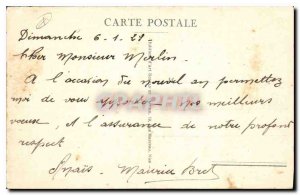 CARTE POSTALE
Dimanche 6.1.29
Cher Monsieur Merlin
A l'occasion du nouvel an permettez
moi de vous nos meilleurs
voeux, et l'assurance de notre profond
respect
Maurice Bret